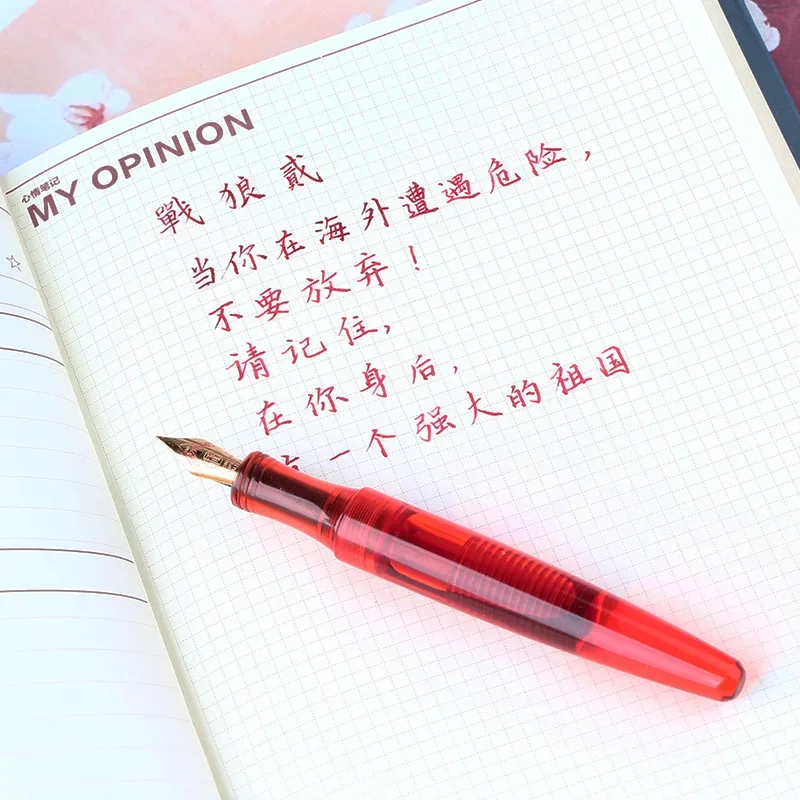 心情笔记
MY OPINION
戰狼貳
当你在海外遭遇危险，
不要放弃！
请记住，
在你身后，
一个强大的祖国